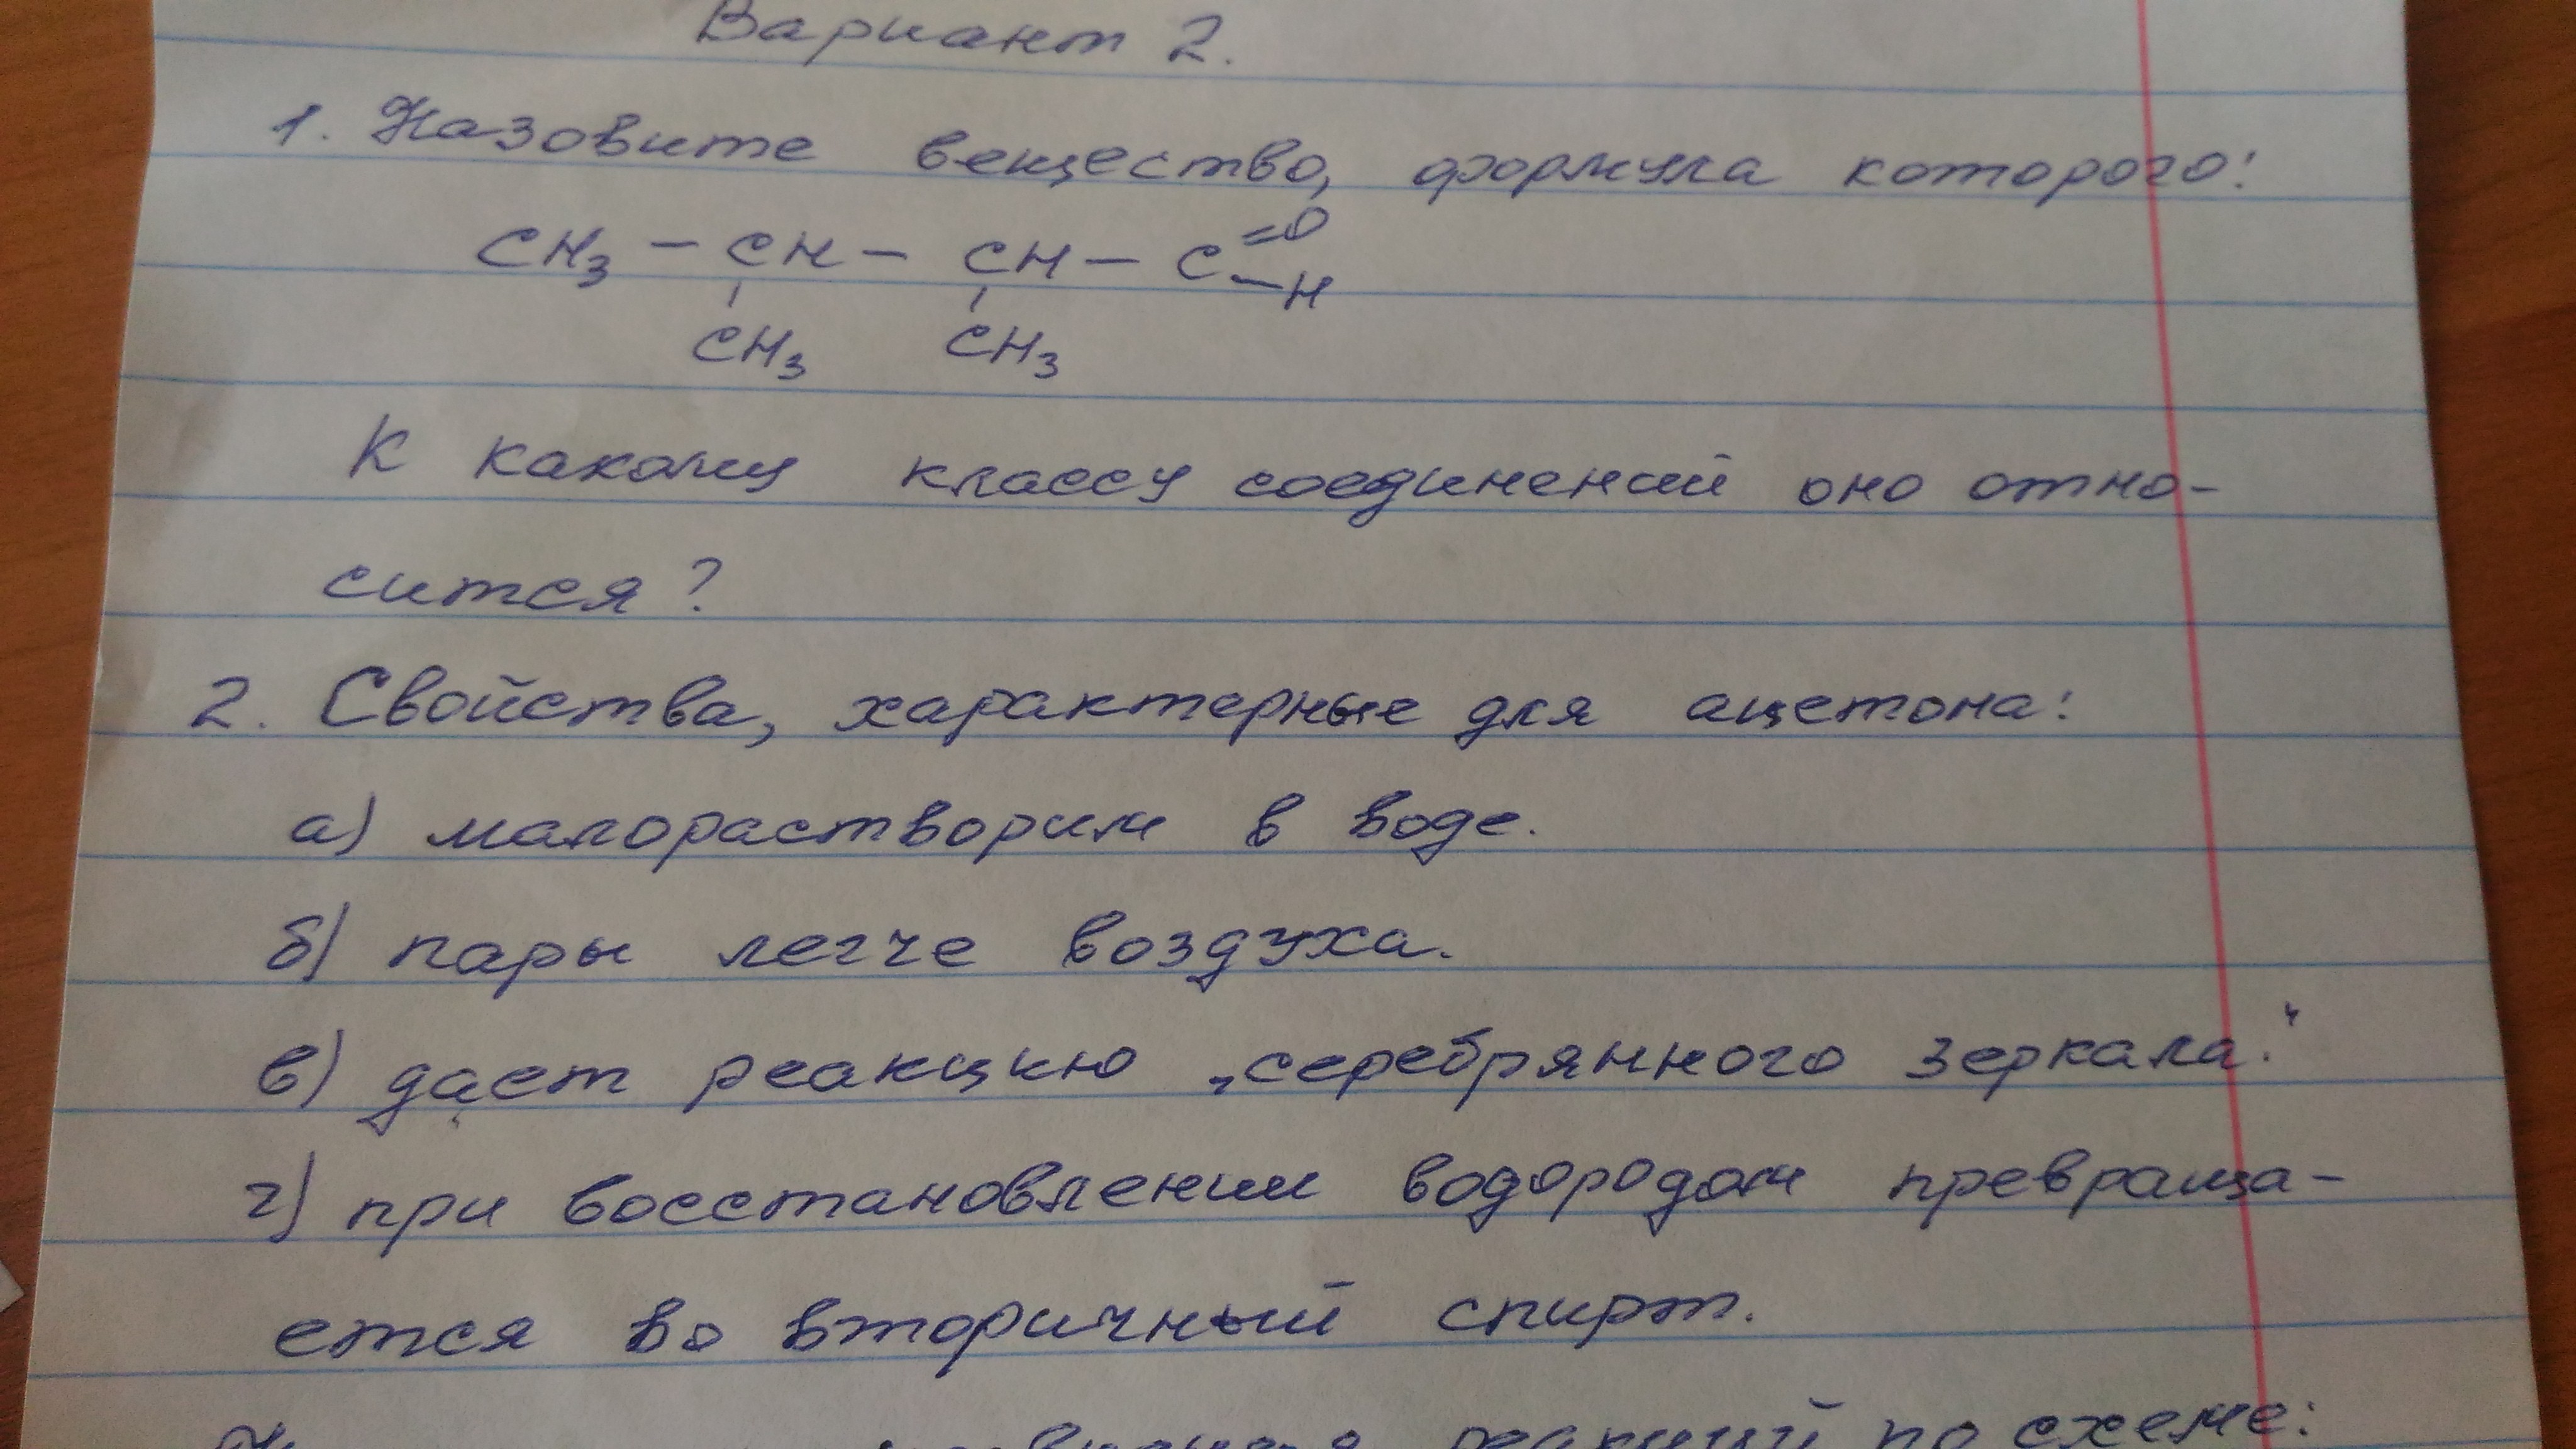 Вариант 2.
1. Назовите вещество, формула которого:
CH₃ – CH – CH – C =O –H
CH₃ CH₃
К какому классу соединений оно отно-
сится?
2. Свойства, характерные для ацетона:
а) малорастворим в воде.
б) пары легче воздуха.
в) дает реакцию „серебрянного зеркала."
г) при восстановлении водородом превраща-
ется во вторичный спирт.
реакций по схеме: